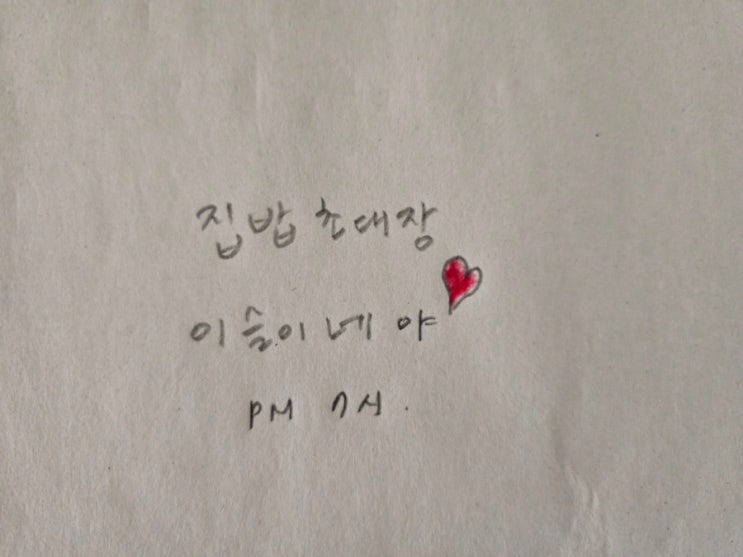 집밥 초대장
이슬이네 야
PM 7시.